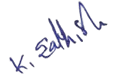 K. Sathish